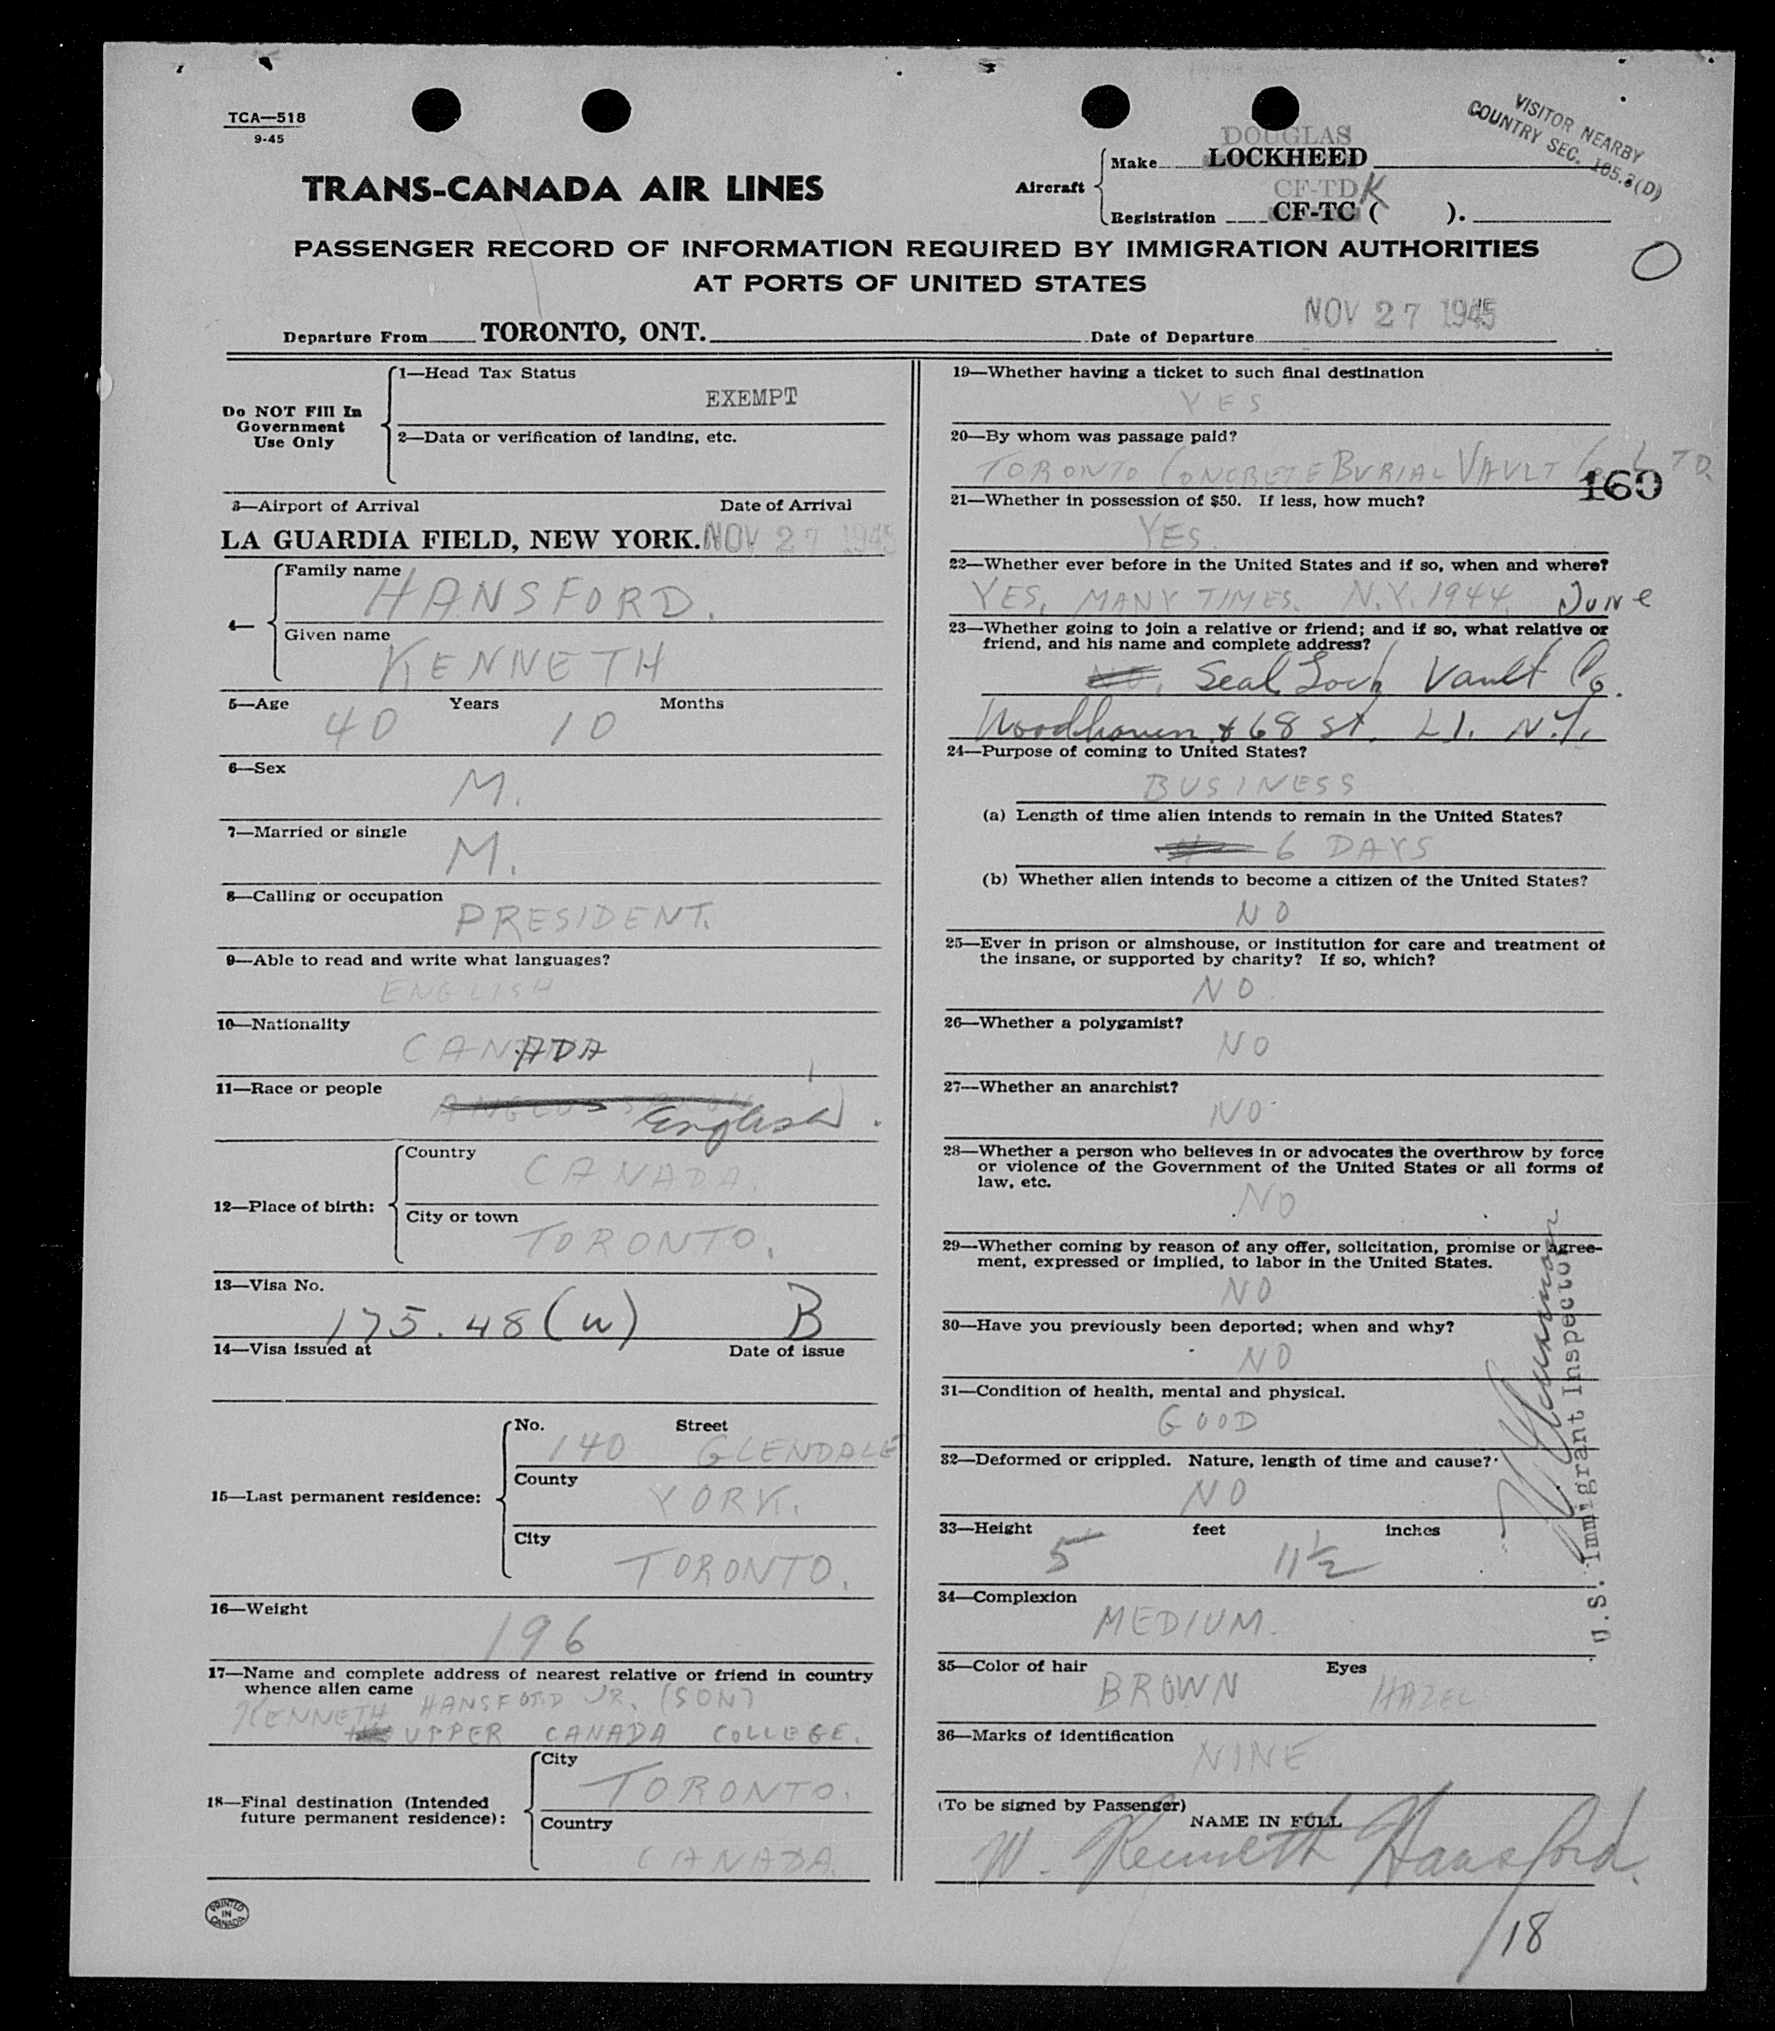 TCA—518
9-45
VISITOR NEARBY
COUNTRY SEC. 165.3(D)
TRANS-CANADA AIR LINES
Aircraft
DOUGLAS
Make LOCKHEED
CF-TDK
Registration CF-TC ( ).
PASSENGER RECORD OF INFORMATION REQUIRED BY IMMIGRATION AUTHORITIES
AT PORTS OF UNITED STATES
O
Departure From TORONTO, ONT. Date of Departure NOV 27 1945
Do NOT Fill In
Government
Use Only
1—Head Tax Status
EXEMPT
2—Data or verification of landing, etc.
3—Airport of Arrival Date of Arrival
LA GUARDIA FIELD, NEW YORK. NOV 27 1945
4—
Family name
HANSFORD.
Given name
KENNETH
5—Age Years Months
40 10
6—Sex
M.
7—Married or single
M.
8—Calling or occupation
PRESIDENT.
9—Able to read and write what languages?
ENGLISH
10—Nationality
CANADA
11—Race or people
English.
12—Place of birth:
Country
CANADA.
City or town
TORONTO.
13—Visa No.
175.48(w) B
14—Visa issued at Date of issue
15—Last permanent residence:
No. Street
140 GLENDALE
County
YORK.
City
TORONTO.
16—Weight
196
17—Name and complete address of nearest relative or friend in country
whence alien came
KENNETH HANSFORD JR. (SON)
UPPER CANADA COLLEGE.
18—Final destination (Intended
future permanent residence):
City
TORONTO.
Country
CANADA.
PRINTED
IN
CANADA
19—Whether having a ticket to such final destination
YES
20—By whom was passage paid?
TORONTO CONCRETE BURIAL VAULT Co. LTD.
160
21—Whether in possession of $50. If less, how much?
YES.
22—Whether ever before in the United States and if so, when and where?
YES, MANY TIMES. N.Y. 1944. June
23—Whether going to join a relative or friend; and if so, what relative or
friend, and his name and complete address?
NO. Seal Lock Vault Co.
Woodhaven & 68 St. L.I. N.Y.
24—Purpose of coming to United States?
BUSINESS
(a) Length of time alien intends to remain in the United States?
6 DAYS
(b) Whether alien intends to become a citizen of the United States?
NO
25—Ever in prison or almshouse, or institution for care and treatment of
the insane, or supported by charity? If so, which?
NO
26—Whether a polygamist?
NO
27—Whether an anarchist?
NO
28—Whether a person who believes in or advocates the overthrow by force
or violence of the Government of the United States or all forms of
law, etc.
NO
29—Whether coming by reason of any offer, solicitation, promise or agree-
ment, expressed or implied, to labor in the United States.
NO
30—Have you previously been deported; when and why?
NO
31—Condition of health, mental and physical.
GOOD
32—Deformed or crippled. Nature, length of time and cause?
NO
33—Height feet inches
5 11½
34—Complexion
MEDIUM.
35—Color of hair Eyes
BROWN HAZEL
36—Marks of identification
NINE
U.S. Immigrant Inspector
(To be signed by Passenger)
NAME IN FULL
W. Kenneth Hansford.
/18